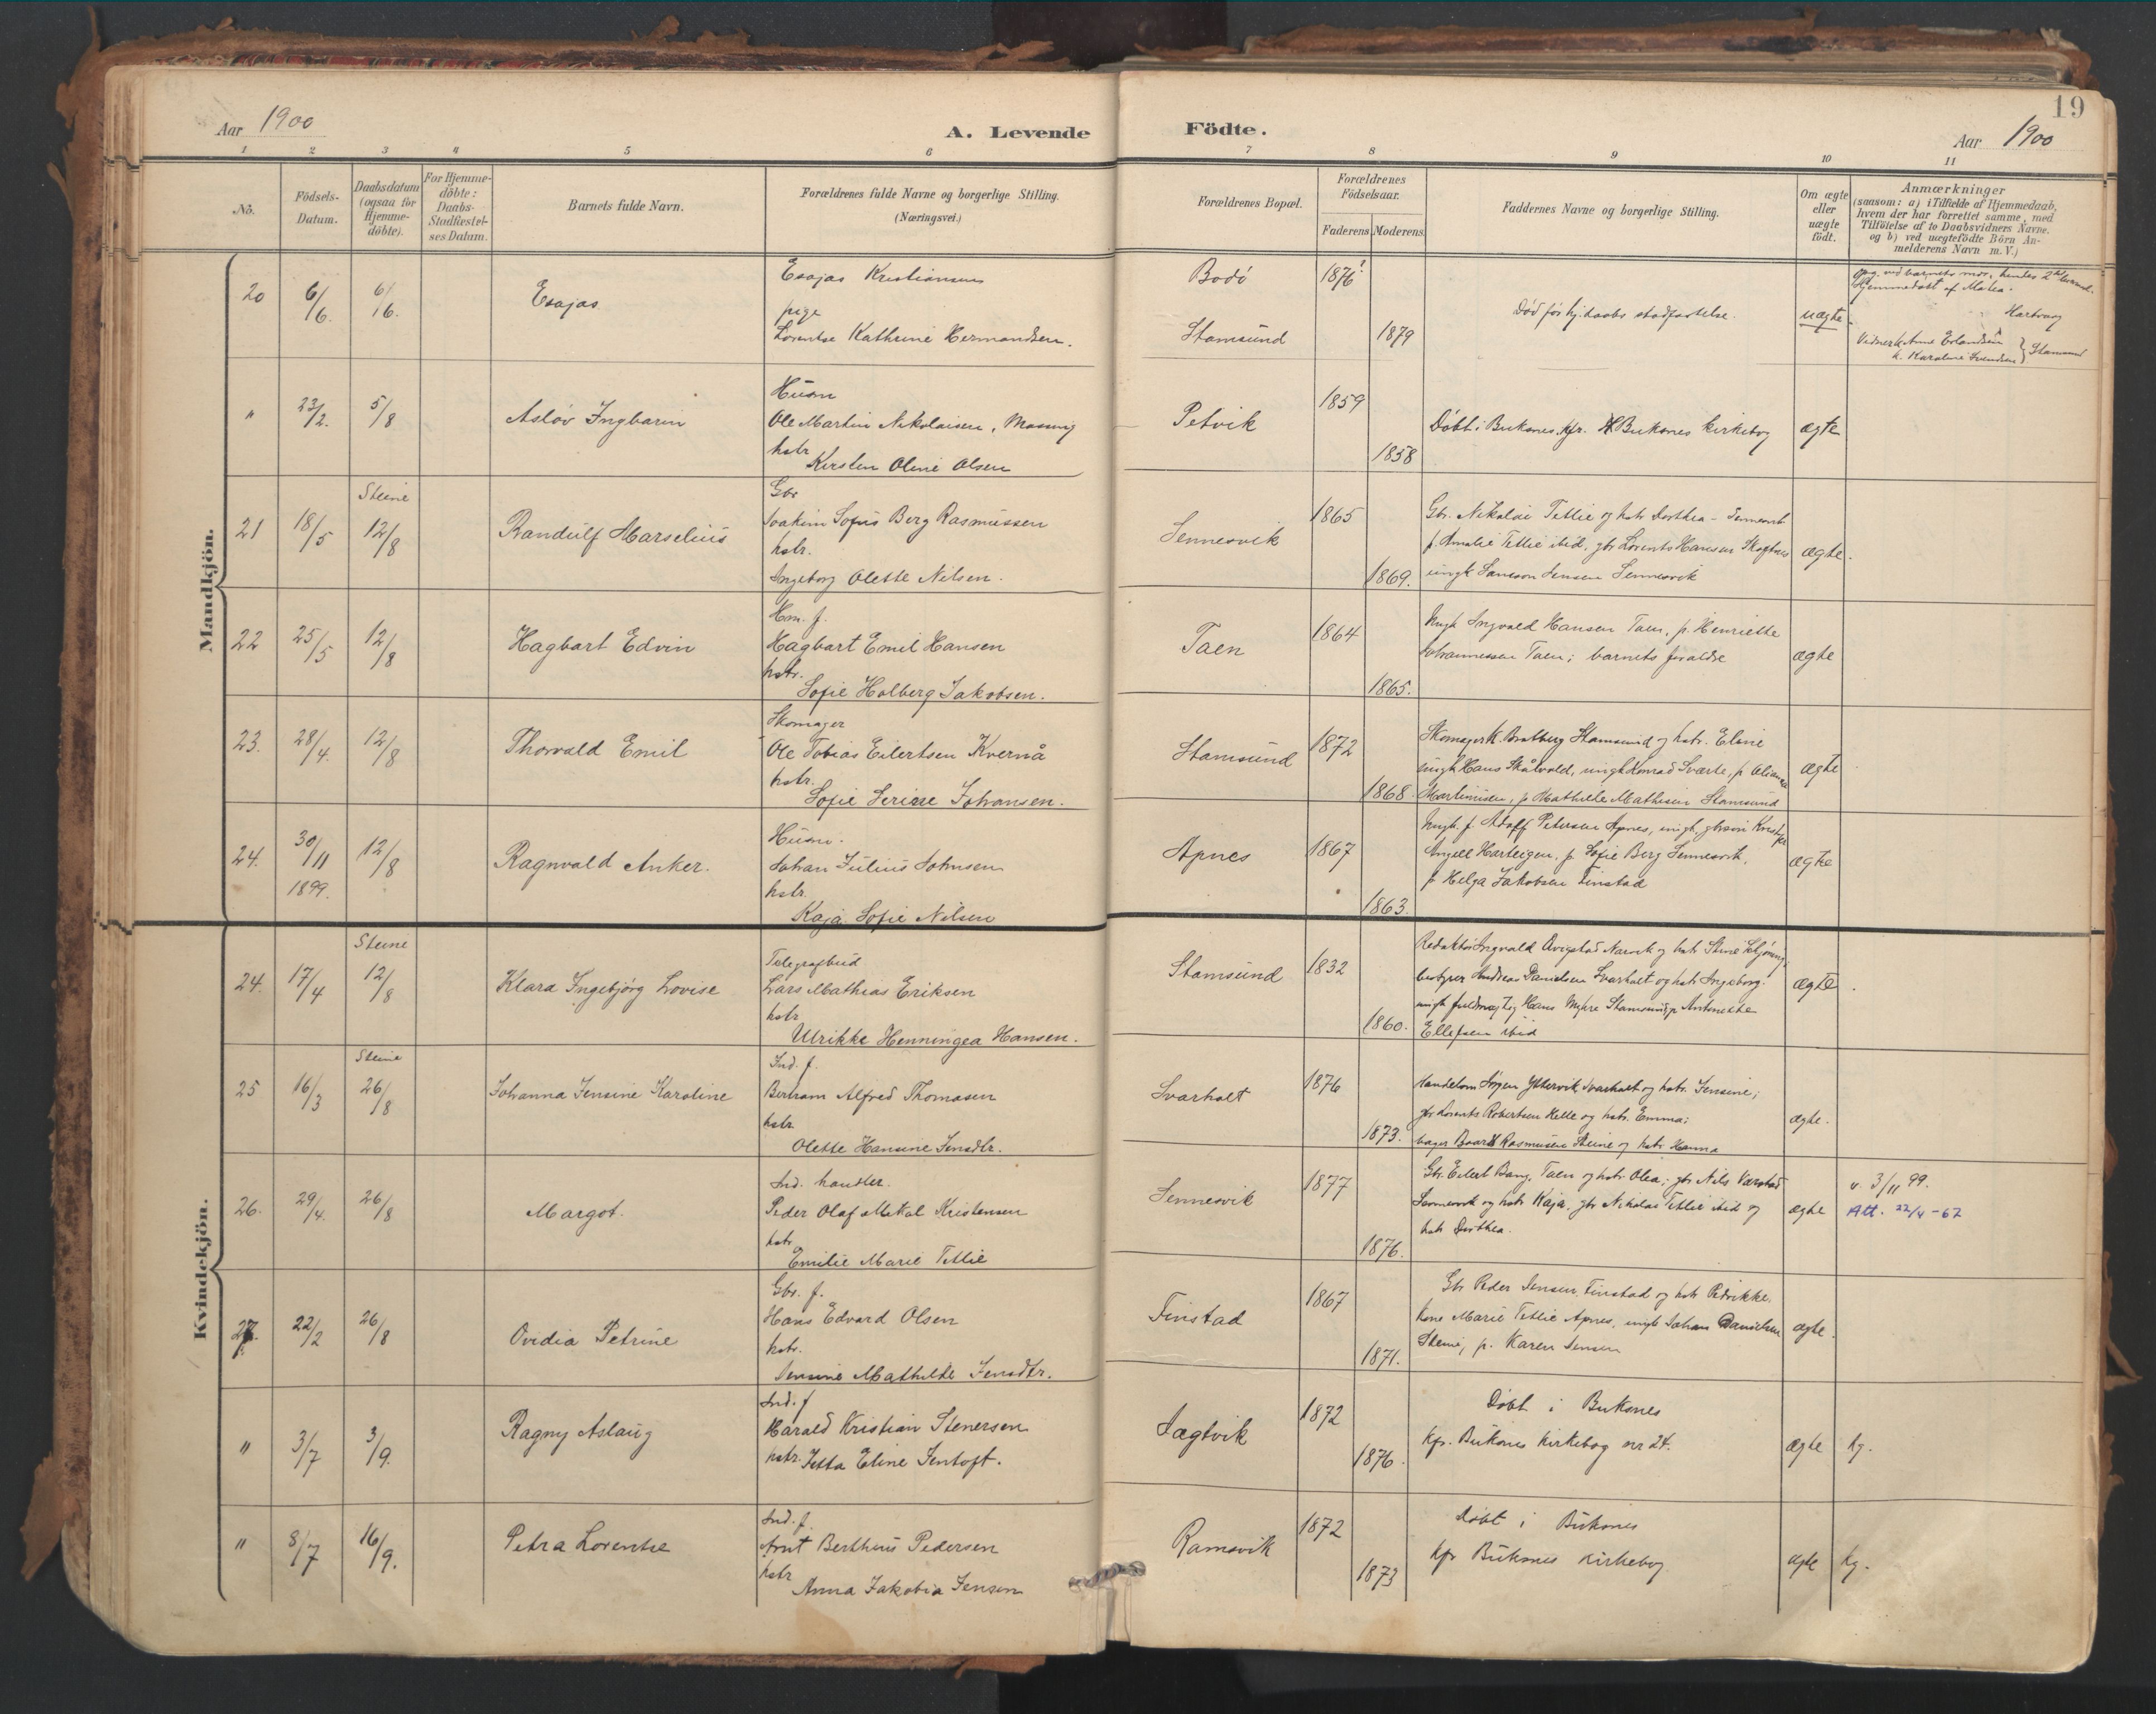 19
Aar 1900
A. Levende Födte.
Aar 1900
1 2 3 4 5 6 7 8 9 10 11
No.
Födsels-Datum.
Daabsdatum (ogsaa for Hjemme-döbte).
For Hjemme-döbte: Daabs-Stadfæstel-ses Datum.
Barnets fulde Navn.
Forældrenes fulde Navne og borgerlige Stilling.
(Næringsvei.)
Forældrenes Bopæl.
Forældrenes Födselsaar.
Faderens Moderens.
Faddernes Navne og borgerlige Stilling.
Om ægte eller uægte födt.
Anmærkninger
(saasom: a) i Tilfælde af Hjemmedaab, hvem der har forrettet samme, med Tilföielse af to Daabsvidners Navne. og b) ved uægtefödte Börn An-melderens Navn m.V.)
Mandkjön.
20 6/6. 6/6. Esajas
Esajas Kristiansen
pige
Lorentse Kathrine Hermandsen.
Bodö 1876?
Stamsund 1879
Död för hj.daabs stadfæstelse.
uægte
Hjemmedöbt af
Hartvig
Stamsund
" 23/2. 5/8 Asløv Ingbarin
Husm
Ole Martin Nikolaisen,
hstr
Kirsten Oline Olsen
Petvik 1859
1858
Döbt i Buksnes, kfr. Buksnes kirkebog
ægte
Steine
21 18/5 12/8 Randulf Marselius
Gbr
Joakim Sofus Berg Rasmussen
hstr.
Ingeborg Olette Nilsen.
Sennesvik 1865
1869.
Gbr. Nikolai Tetlie og hstr Dorthea - Sennesvik
p. Amalie Tetlie ibid, gbr Lorents Hansen
ungk Jensen Sennesvik
ægte.
22 25/5 12/8 Hagbart Edvin
Hm. f.
Hagbart Emil Hansen
hstr.
Sofie Holberg Jakobsen.
Taen 1864
1865.
Ungk Ingvald Hansen Taen, p. Henriette
Johannessen Taen; barnets forældre
ægte
23. 28/4. 12/8 Thorvald Emil
Skomager
Ole Tobias Eilertsen Kvernå
hstr.
Sofie Serine Johansen.
Stamsund 1872
1868.
Skomager K. Bratberg Stamsund og hstr. Eline
ungk Hans Skålvold, ungk Konrad Sværte, p
Martinisen, p Mathilde Mathisen Stamsund
ægte
24. 30/11 1899. 12/8 Ragnvald Anker.
Husm.
Johan Julius Johnsen
hstr.
Kaja Sofie Nilsen
Apnes 1867
1863.
Ungk. f. Adolf Petersen Apnes, ungk,
Angell Harteigen, p. Sofie Berg Sennesvik,
p Helga Jakobsen Finstad
ægte
Kvindekjön.
Steine
24. 17/4 12/8 Klara Ingebjørg Lovise
Telegrafbud
Lars Mathias Eriksen
hstr
Ulrikke Henningea Hansen.
Stamsund 1832
1860.
Redaktör Ingvald Narvik og hstr
bestyrer Andreas Danielsen Svarholt og hstr Ingeborg.
ungk Hans Myhre Stamsund, p Antonette
Ellefsen ibid
ægte
Steine
25 16/3 26/8 Johanna Jensine Karoline
Ind. f.
Bertram Alfred Thomasen
hstr
Olette Hansine Jensdtr.
Svarholt 1876
1873.
Handelsm Jörgen Yttervik Svarholt og hstr. Jensine;
gbr Lorents Robertsen Helle og hstr. Emma;
bager Rasmussen Steine og hstr Hanna
ægte.
26. 29/4. 26/8 Margot.
Ind. handler.
Peder Olaf Mikal Kristensen
hstr.
Emilie Marie Tetlie
Sennesvik 1877
1876.
Gbr. Eilert Bang, Taen og hstr. Olea; gbr Nils Værstad
Sennesvik og hstr Kaja, gbr Nikolai Tetlie ibid og
hstr Dorthea.
ægte
v. 3/11 99.
Att. 22/4-62
27. 22/2 26/8 Ovidia Petrine
Gbr. f.
Hans Edvard Olsen
hstr.
Jensine Mathilde Jensdtr.
Finstad 1867
1871.
Gbr Peder Jensen, Finstad og hstr Petrikke,
kone Marie Tetlie Apnes, ungk Johan Danielsen
Steine, p. Karen Jensen
ægte.
" 3/7 3/9. Ragny Aslaug
Ind. f
Harald Kristian Stenersen
hstr. Jetta Eline Jentoft.
Sagtvik 1872
1876.
Döbt i Buksnes
kfr. Buksnes kirkebog nr 24.
ægte kg.
" 8/7 16/9. Petra Lorentse
Ind. f.
Arnt Berthius Pedersen
hstr
Anna Jakobia Jensen
Ramsvik 1872
1873
Döbt i Buksnes
kfr Buksnes kirkebog.
ægte kg.